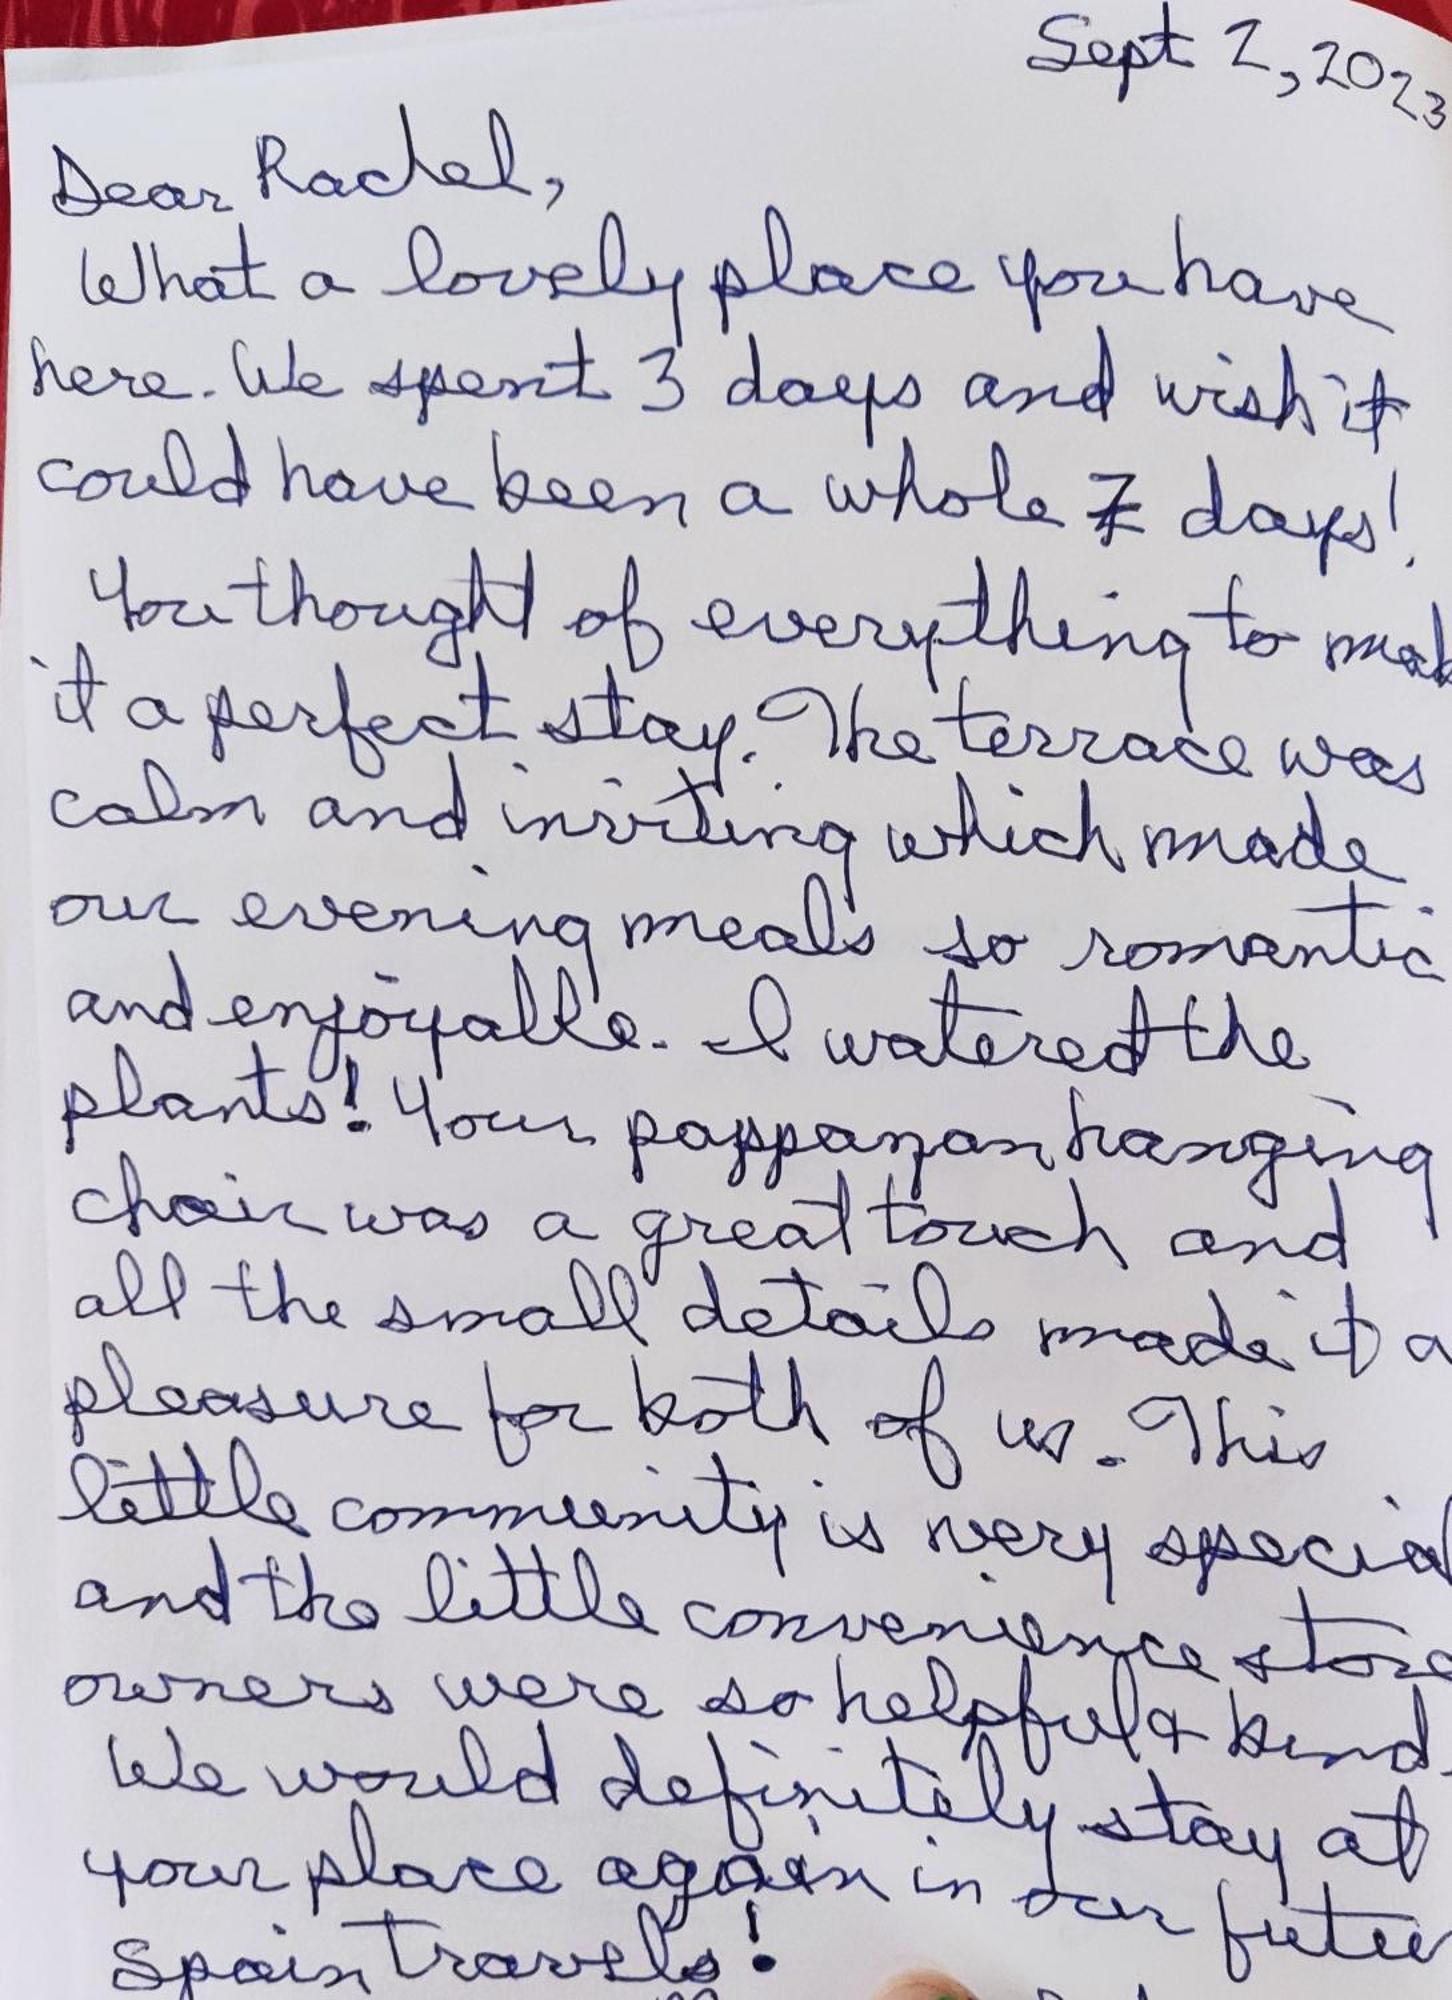 Sept 2, 2023
Dear Rachel,
What a lovely place you have
here. We spent 3 days and wish it
could have been a whole 7 days!
You thought of everything to mak
it a perfect stay. The terrace was
calm and inviting which made
our evening meals so romantic
and enjoyable. I watered the
plants! Your pappazan hanging
chair was a great touch and
all the small details made it a
pleasure for both of us. This
little community is very special
and the little convenience store
owners were so helpful & kind.
We would definitely stay at
your place again in our futur
Spain travels!